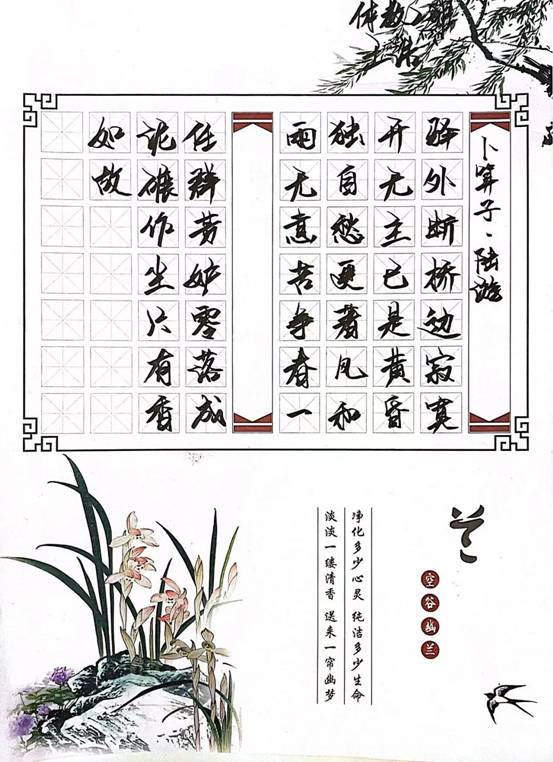 卜算子·陆游
驿外断桥边寂寞
开无主已是黄昏
独自愁更著风和
雨无意苦争春一
任群芳妒零落成
泥碾作尘只有香
如故
兰
空谷幽兰
净化多少心灵 纯洁多少生命
淡淡一缕清香 遥来一帘幽梦